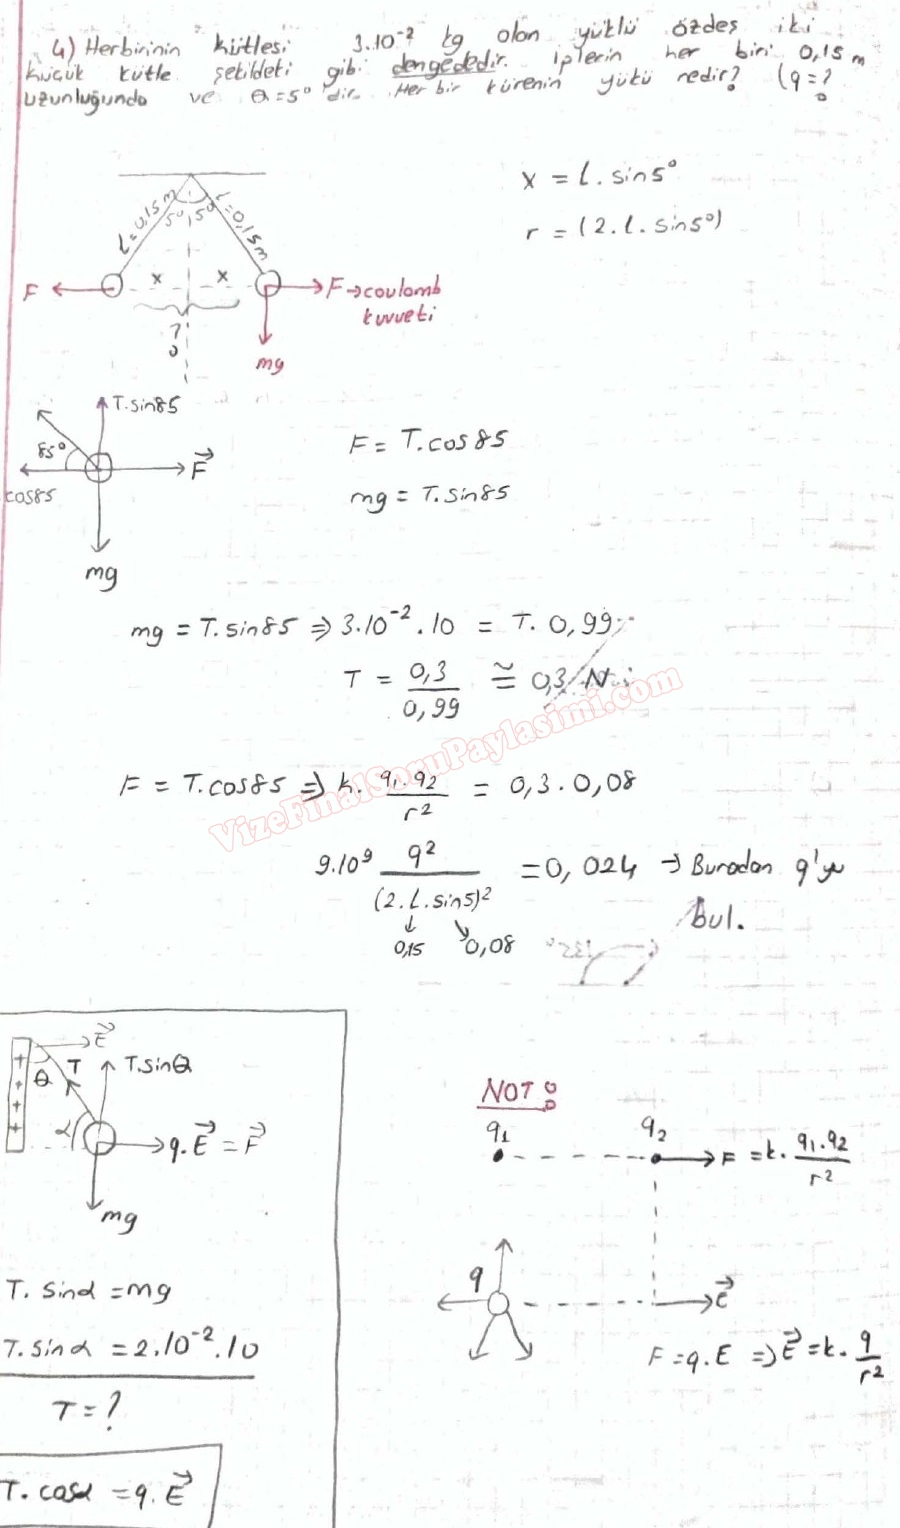 4) Herbirinin kütlesi 3.10⁻² kg olan yüklü özdeş iki
küçük kütle şekildeki gibi dengededir. İplerin her biri 0,15 m
uzunluğunda ve θ=5° dir. Her bir kürenin yükü nedir? (q=?
L=0,15m
L=0,15m
5° 5°
x = L.sin5°
r = (2.L.sin5°)
F
x
x
F→coulomb
kuvveti
?
mg
T.sin85
85°
F
cos85
mg
F = T.cos85
mg = T.sin85
mg = T.sin85 ⇒ 3.10⁻².10 = T. 0,99
T = 0,3/0,99 ≅ 0,3 N
VizeFinalSoruPaylasimi.com
F = T.cos85 ⇒ k. q₁.q₂/r² = 0,3.0,08
9.10⁹ q²/(2.L.sin5)² = 0,024 → Buradan q'yu
bul.
0,15
0,08
E
θ
T
T.sinθ
+
+
+
+
α
q.E = F
mg
T. sinα = mg
T. sinα = 2.10⁻².10
T = ?
T. cosα = q.E
NOT:
q₁
q₂
F = k. q₁.q₂/r²
q
E
F = q.E ⇒ E = k. q/r²